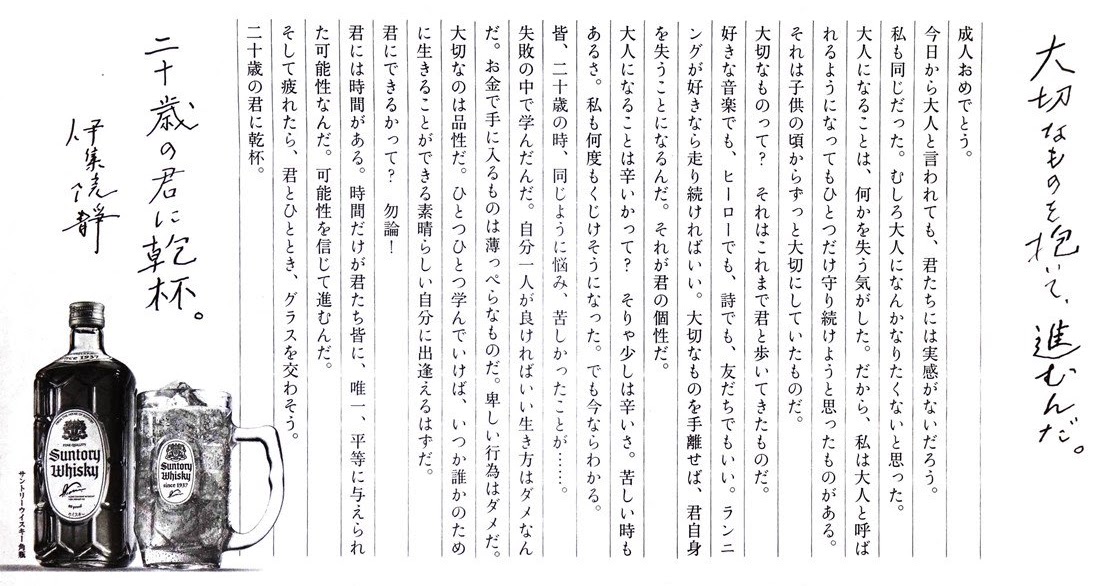 大切なものを抱いて、進むんだ。
成人おめでとう。
今日から大人と言われても、君たちには実感がないだろう。
私も同じだった。むしろ大人になんかなりたくないと思った。
大人になることは、何かを失う気がした。だから、私は大人と呼ば
れるようになってもひとつだけ守り続けようと思ったものがある。
それは子供の頃からずっと大切にしていたものだ。
大切なものって？　それはこれまで君と歩いてきたものだ。
好きな音楽でも、ヒーローでも、詩でも、友だちでもいい。ランニ
ングが好きなら走り続ければいい。大切なものを手離せば、君自身
を失うことになるんだ。それが君の個性だ。
大人になることは辛いかって？　そりゃ少しは辛いさ。苦しい時も
あるさ。私も何度もくじけそうになった。でも今ならわかる。
皆、二十歳の時、同じように悩み、苦しかったことが……。
失敗の中で学んだんだ。自分一人が良ければいい生き方はダメなん
だ。お金で手に入るものは薄っぺらなものだ。卑しい行為はダメだ。
大切なのは品性だ。ひとつひとつ学んでいけば、いつか誰かのため
に生きることができる素晴らしい自分に出逢えるはずだ。
君にできるかって？　勿論！
君には時間がある。時間だけが君たち皆に、唯一、平等に与えられ
た可能性なんだ。可能性を信じて進むんだ。
そして疲れたら、君とひととき、グラスを交わそう。
二十歳の君に乾杯。
二十歳の君に乾杯。
伊集院静
since 1937
Suntory
Whisky
ウイスキー
Suntory
Whisky
since 1937
サントリーウイスキー角瓶